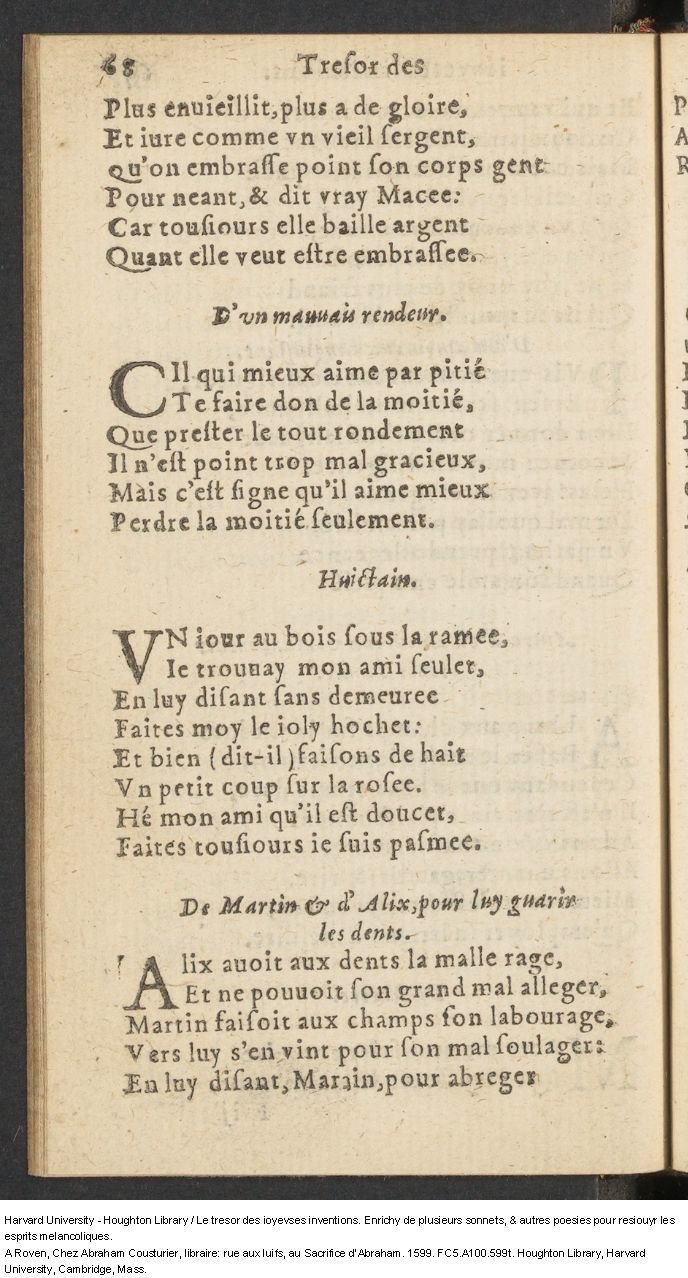 68 Treſor des
Plus enuieillit, plus a de gloire,
Et iure comme vn vieil ſergent,
Qu'on embraſſe point ſon corps gent
Pour neant, & dit vray Macee:
Car touſiours elle baille argent
Quant elle veut eſtre embraſſee.
D'vn mauuais rendeur.
CIl qui mieux aime par pitié
Te faire don de la moitié,
Que preſter le tout rondement
Il n'eſt point trop mal gracieux,
Mais c'eſt ſigne qu'il aime mieux
Perdre la moitié ſeulement.
Huictain.
VN iour au bois ſous la ramee,
Ie trouuay mon ami ſeulet,
En luy diſant ſans demeuree
Faites moy le ioly hochet:
Et bien (dit-il) faiſons de hait
Vn petit coup ſur la roſee.
Hé mon ami qu'il eſt doucet,
Faites touſiours ie ſuis paſmee.
De Martin & d'Alix, pour luy guarir
les dents.
Alix auoit aux dents la malle rage,
Et ne pouuoit ſon grand mal alleger,
Martin faiſoit aux champs ſon labourage,
Vers luy s'en vint pour ſon mal ſoulager:
En luy diſant, Martin, pour abreger
Harvard University - Houghton Library / Le tresor des ioyevses inventions. Enrichy de plusieurs sonnets, & autres poesies pour resiouyr les
esprits melancoliques.
A Roven, Chez Abraham Cousturier, libraire: rue aux Iuifs, au Sacrifice d'Abraham. 1599. FC5.A100.599t. Houghton Library, Harvard
University, Cambridge, Mass.